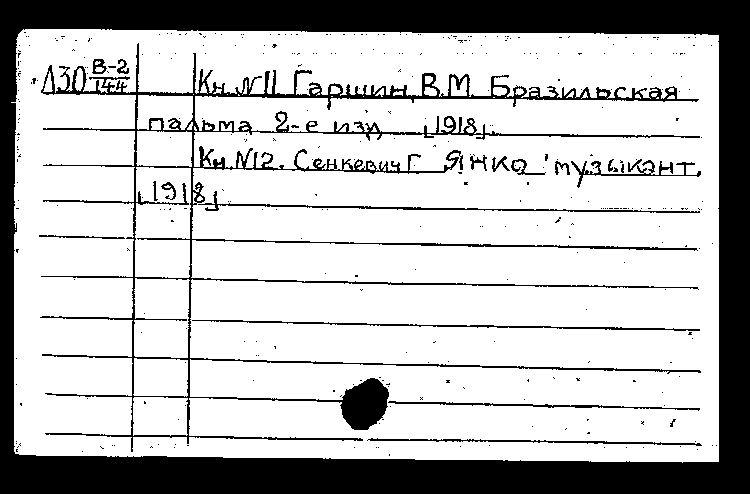 Л30 В-2/144 Кн. №11 Гаршин, В.М. Бразильская
пальма 2-е изд [1918].
Кн. №12. Сенкевич Г Янко музыкант.
[1918]